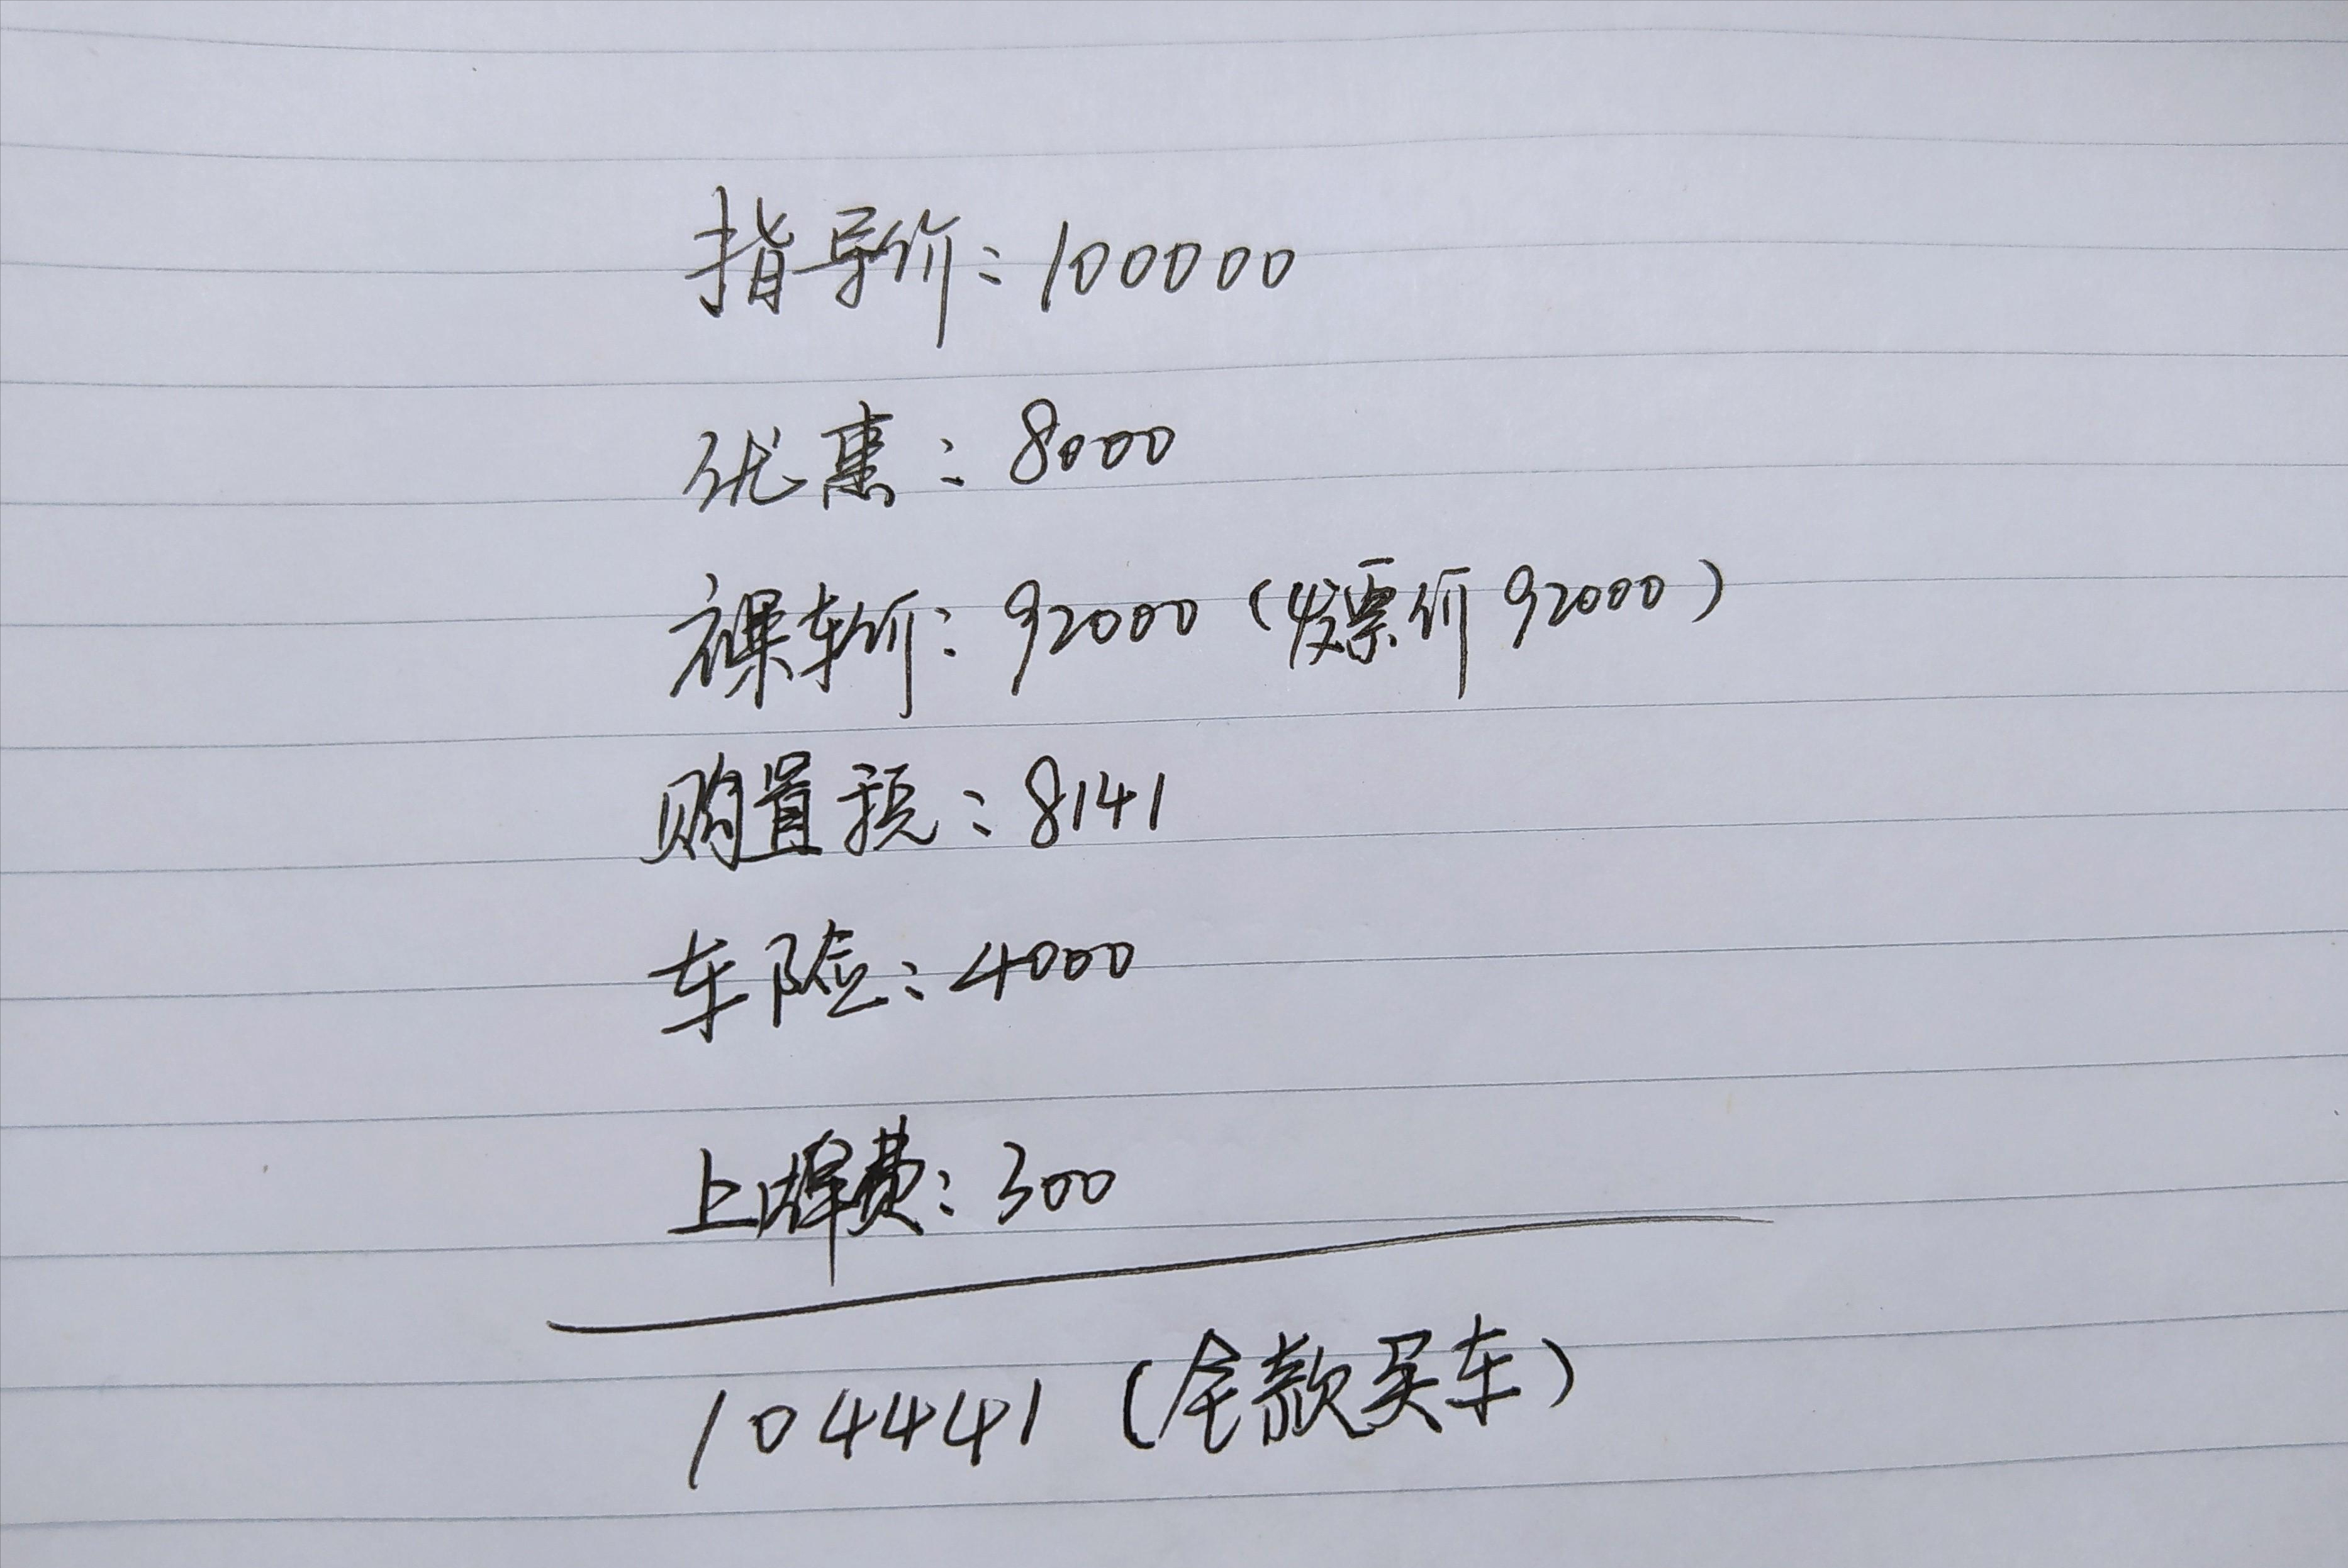 指导价：100000
优惠：8000
裸车价：92000（发票价92000）
购置税：8141
车险：4000
上牌费：300
104441（全款买车）